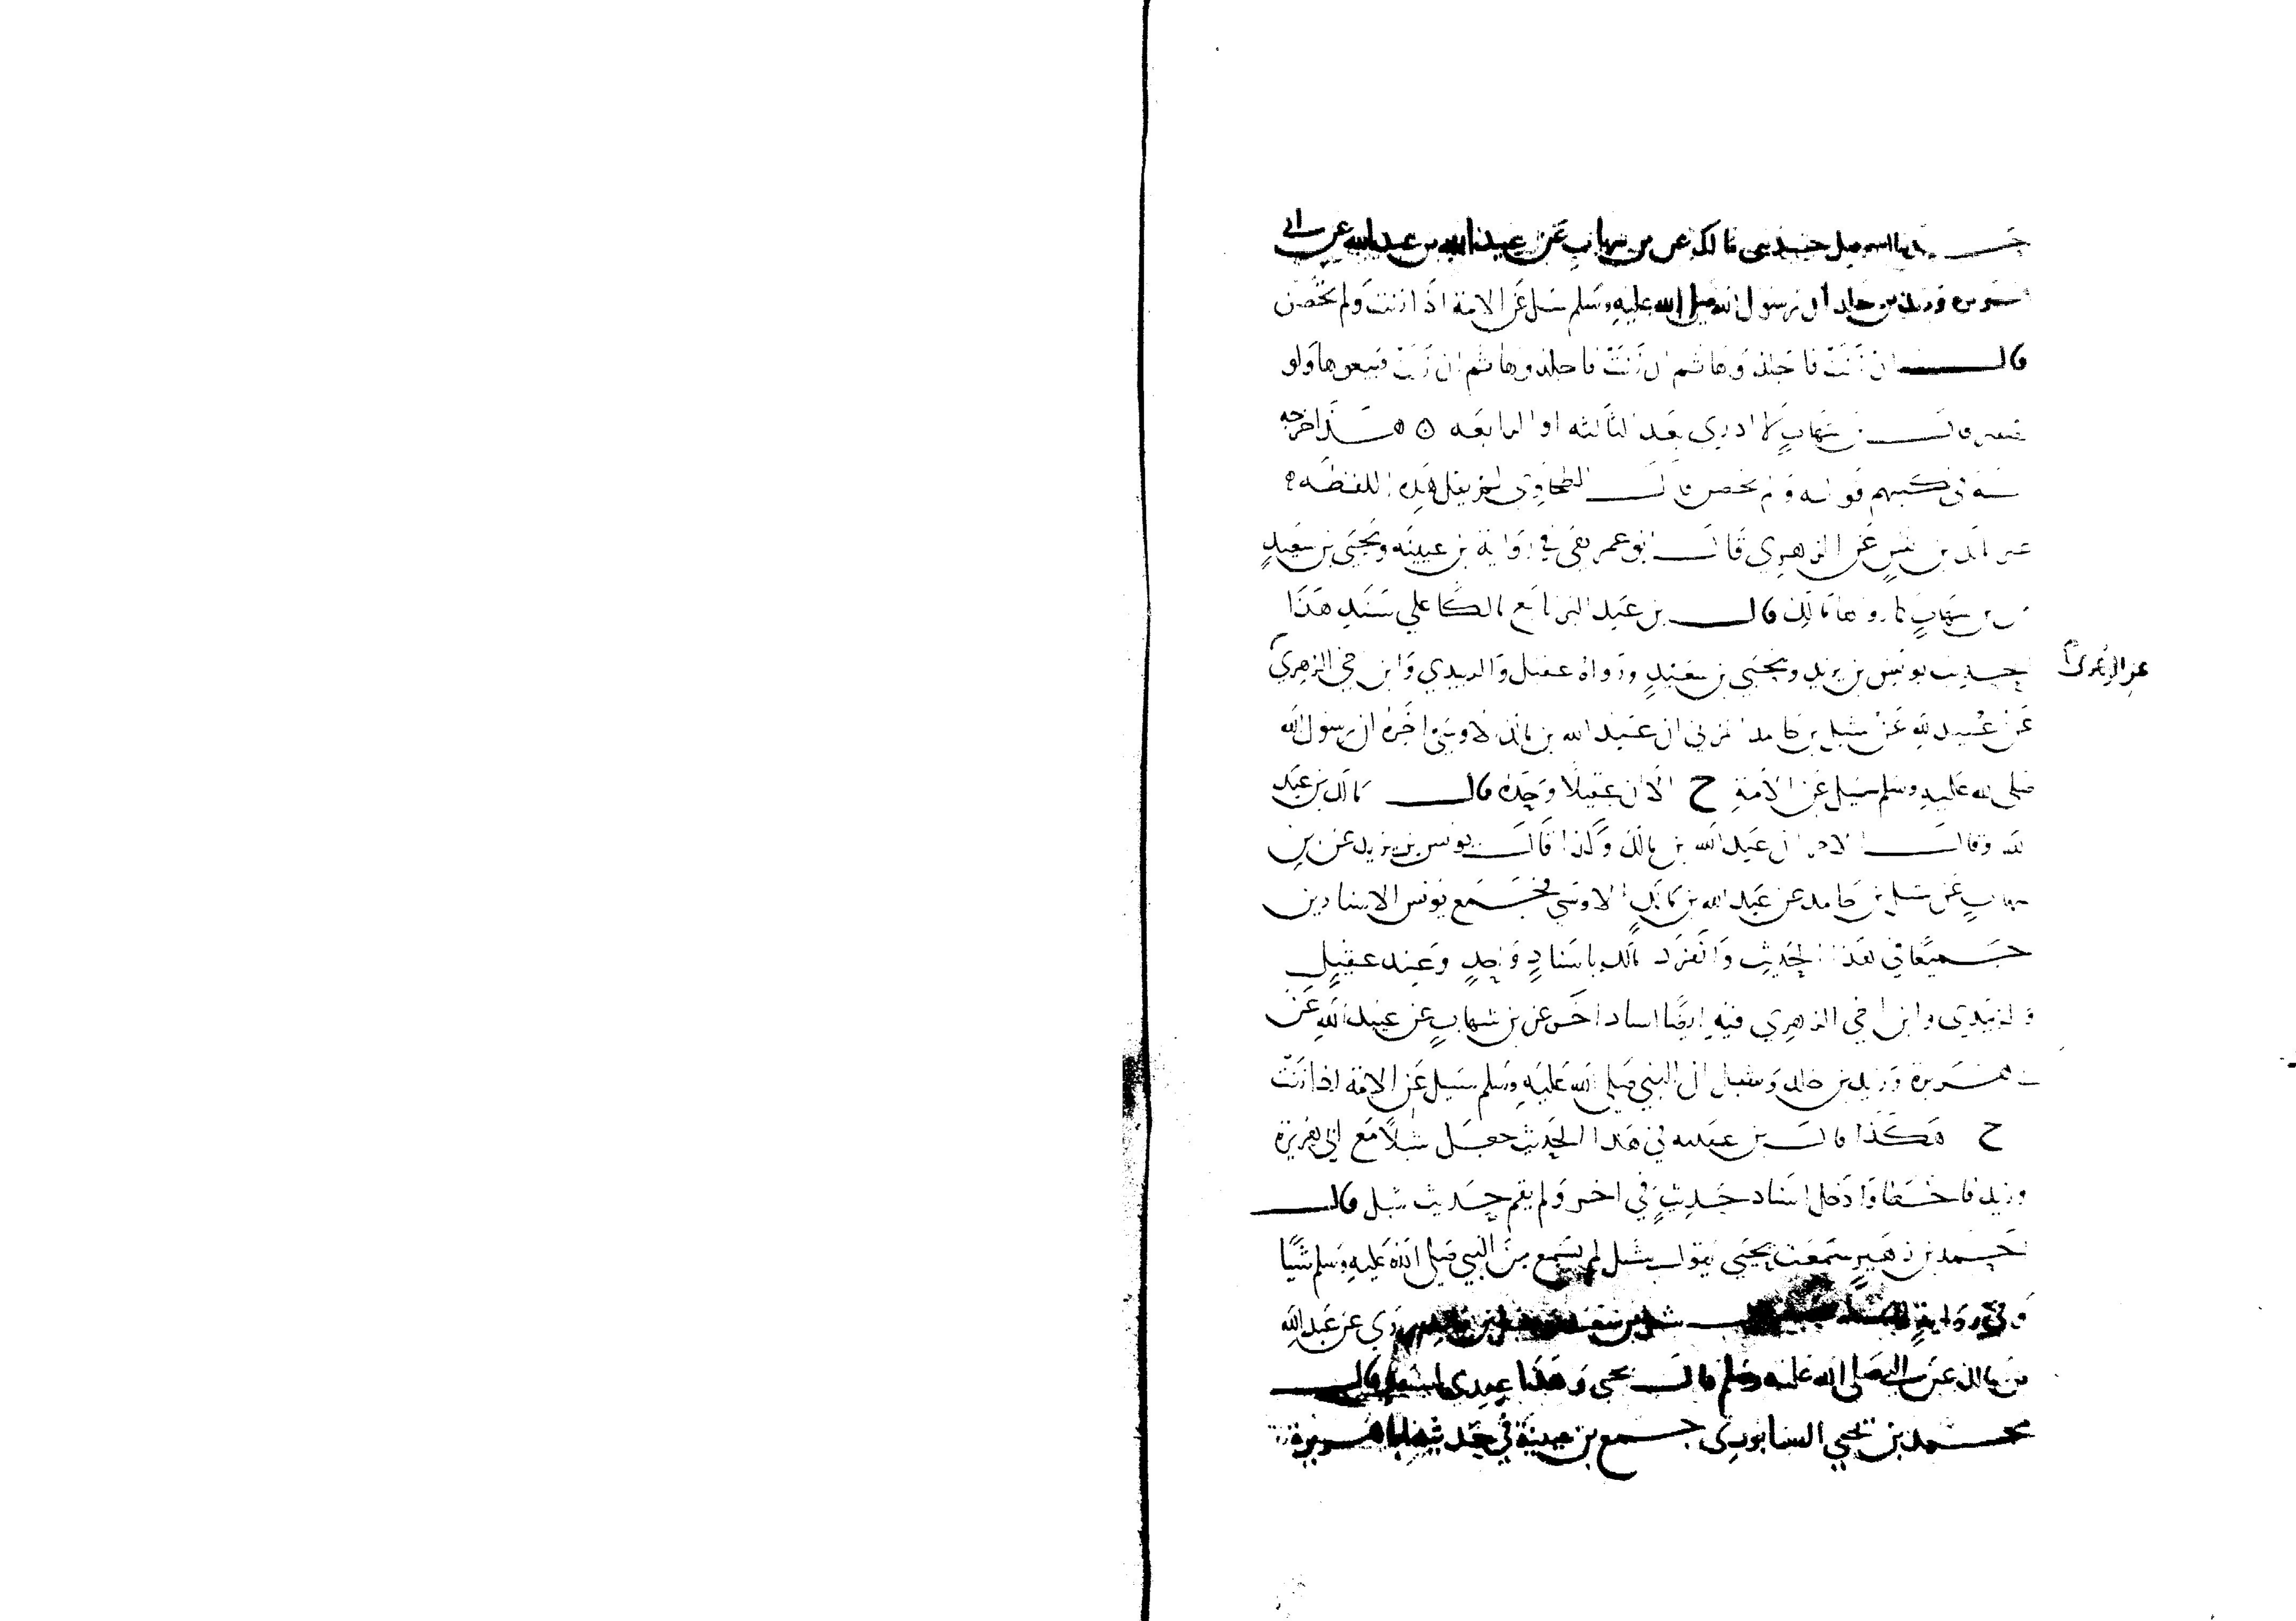 حدثنا اسمعيل حدثني مالك عن بن شهاب عن عبيد الله بن عبد الله عن ابي
هريرة وزيد بن خالد ان رسول الله صلى الله عليه وسلم سئل عن الامة اذا زنت ولم تحصن
قال ان زنت فاجلدوها ثم ان زنت فاجلدوها ثم ان زنت فبيعوها ولو
بضفير قال بن شهاب لا ادري بعد الثالثة او الرابعة ه هذا اخرجه
في كتبهم قوله ولم تحصن قال الطحاوي لم يقل هذه اللفظه
غير مالك بن انس عن الزهري قال ابو عمر بقي في رواية بن عيينه ويحيى بن سعيد
عن بن شهاب كما رواها مالك قال بن عبد البر تابع مالكا على سند هذا
الحديث يونس بن يزيد ويحيى بن سعيد ورواه عقيل والزبيدي وابن اخي الزهري
عن الزهري
عن عبيد الله عن شبل بن حامد المزني ان عبد الله بن مالك الاوسي اخبره ان رسول الله
صلى الله عليه وسلم سئل عن الامة ح الا ان عقيلا وحده قال مالك بن عبد
الله وقال الاخران عبد الله بن مالك وكذا قال يونس بن يزيد عن بن
شهاب عن شبل بن حامد عن عبد الله بن مالك الاوسي فجمع يونس الاسنادين
جميعا في هذا الحديث وانفرد مالك باسناد واحد وعند عقيل
والزبيدي وابن اخي الزهري فيه ايضا اسناد اخر عن بن شهاب عن عبيد الله عن
ابي هريرة وزيد بن خالد وشبل ان النبي صلى الله عليه وسلم سئل عن الامة اذا زنت
ح هكذا قال بن عيينه في هذا الحديث جعل شبلا مع ابي هريرة
وزيد فاخطا وادخل اسناد حديث في اخر ولم يقم حديث شبل قال
احمد بن زهير سمعت يحيى يقول شبل لم يسمع من النبي صلى الله عليه وسلم شيا
وفي رواية شبل بن معبد عن عبد الله
بن مالك عن النبي صلى الله عليه وسلم قال يحيى وهذا عندي اشبه قال
محمد بن يحيى النيسابوري جمع بن عيينة في حديثه ابا هريرة